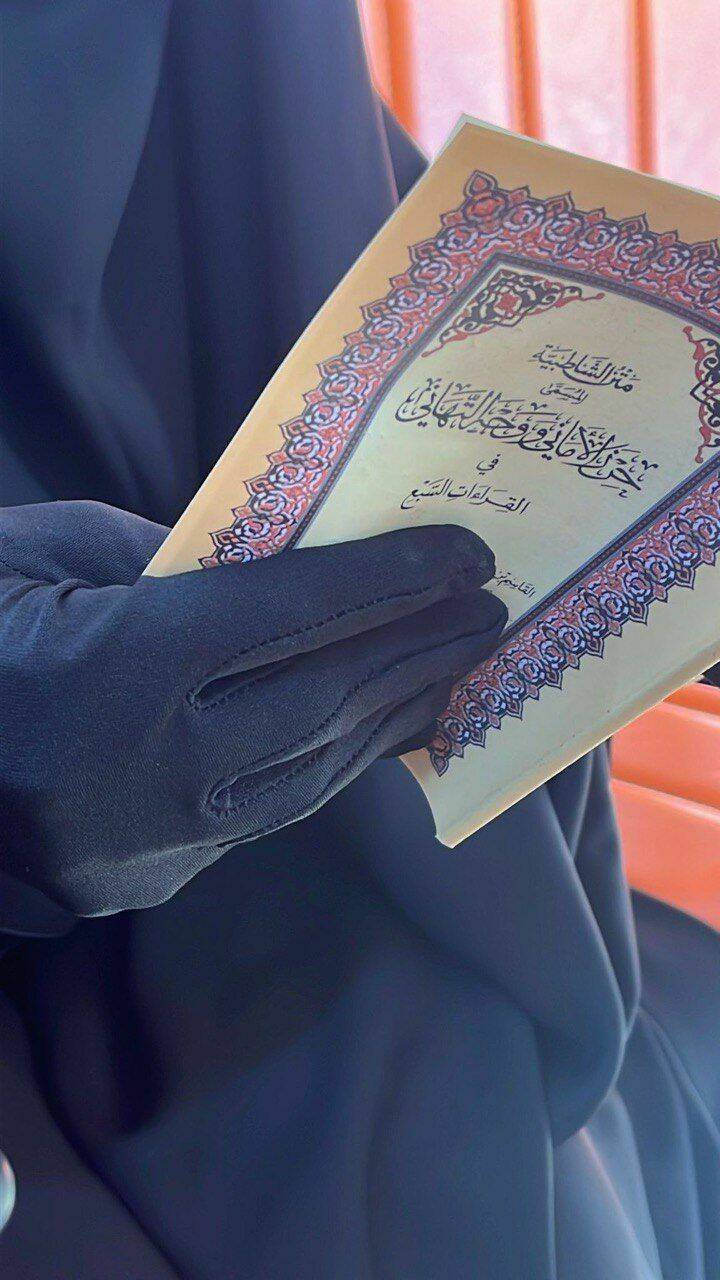 مَتْنُ الشَّاطِبِيَّة
المُسَمَّى
حِرْزُ الأَمَانِي وَوَجْهُ التَّهَانِي
فِي
القِرَاءَاتِ السَّبْعِ
القَاسِم بْن